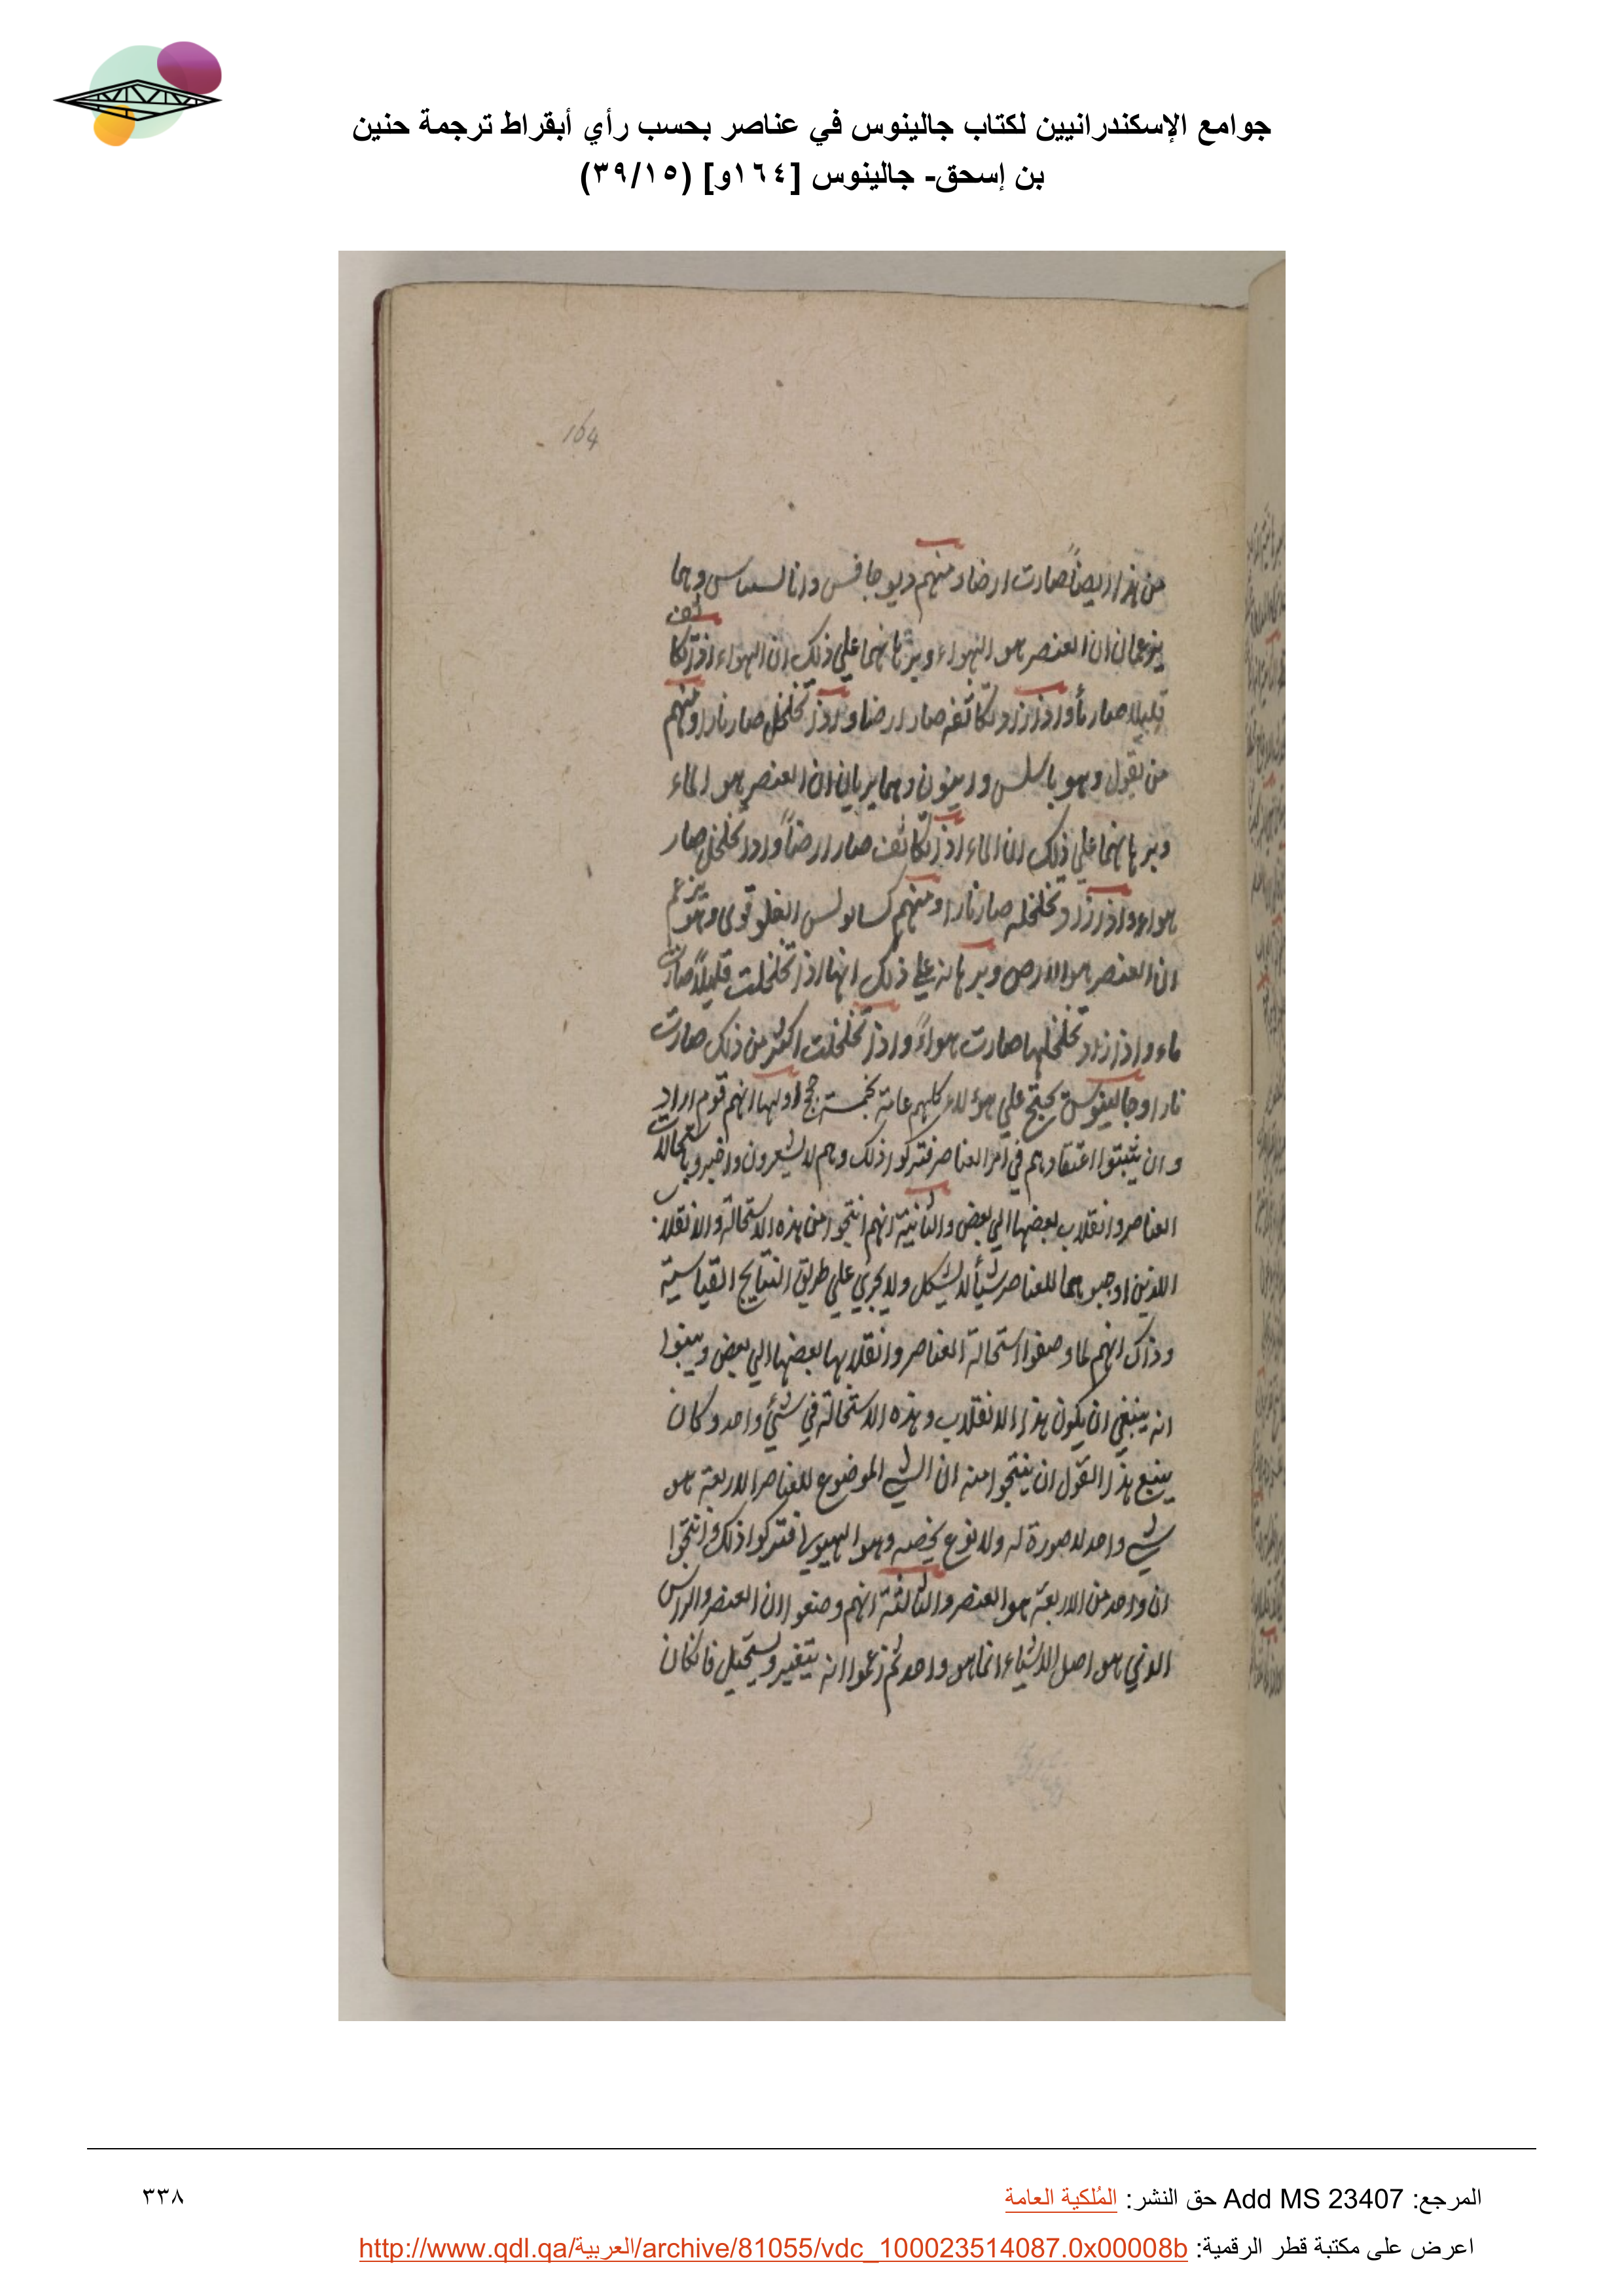 جوامع الإسكندرانيين لكتاب جالينوس في عناصر بحسب رأي أبقراط ترجمة حنين
بن إسحق- جالينوس [١٦٤و] (٣٩/١٥)
164
من هذا ايضاً صارت ارضا ومنهم ديوجانس وانا وهما
يزعمان ان العنصر هو الهواء وبرهانهما علي ذلك ان الهواء اذا تكاثف
قليلا صار مأ واذا ازداد تكاثفه صار ارضا واذا تخلخل صار نارا ومنهم
من يقول وهو ثاليس وهما يريان ان العنصر هو الماء
وبرهانهما علي ذلك ان الماء اذا تكاثف صار ارضاً واذا تخلخل صار
هواء واذا ازداد تخلخله صار نارا ومنهم وهو يزعم
ان العنصر هو الارض وبرهانه علي ذلك انها اذا تخلخلت قليلاً صارت
ماء واذا ازداد تخلخلها صارت هواءً واذا تخلخلت اكثر من ذلك صارت
نارا وجالينوس يحتج علي هؤلاء كلهم عامة بخمسة حجج اولها انهم قوم اراد
وان يثبتوا اعتقادهم في امر العناصر فتركوا ذلك وهم لا يشعرون واخبروا باستحالات
العناصر وانقلاب بعضها الي بعض والثانية انهم انتجوا من هذه الاستحالة والانقلاب
اللذين اوجبوهما للعناصر شيأ لا يشكل ولا يجري علي طريق النتايج القياسية
وذاك انهم لما وصفوا استحالة العناصر وانقلابها بعضها الي بعض وبينوا
انه ينبغي ان يكون هذا الانقلاب وهذه الاستحالة في شئي واحد وكان
يتبع هذا القول ان ينتجوا منه ان الشي الموضوع للعناصر الاربعة هو
شي واحد لا صورة له ولا نوع يخصه وهو الهيولي فتركوا ذلك وانتجوا
ان واحد من الاربعة هو العنصر والثالثة انهم وصفوا ان العنصر والراس
الذي هو اصل الاشياء انما هو واحد ثم زعموا انه يتغير ويستحيل فان كان
المرجع: Add MS 23407 حق النشر: المُلكية العامة
٣٣٨
اعرض على مكتبة قطر الرقمية: http://www.qdl.qa/العربية/archive/81055/vdc_100023514087.0x00008b